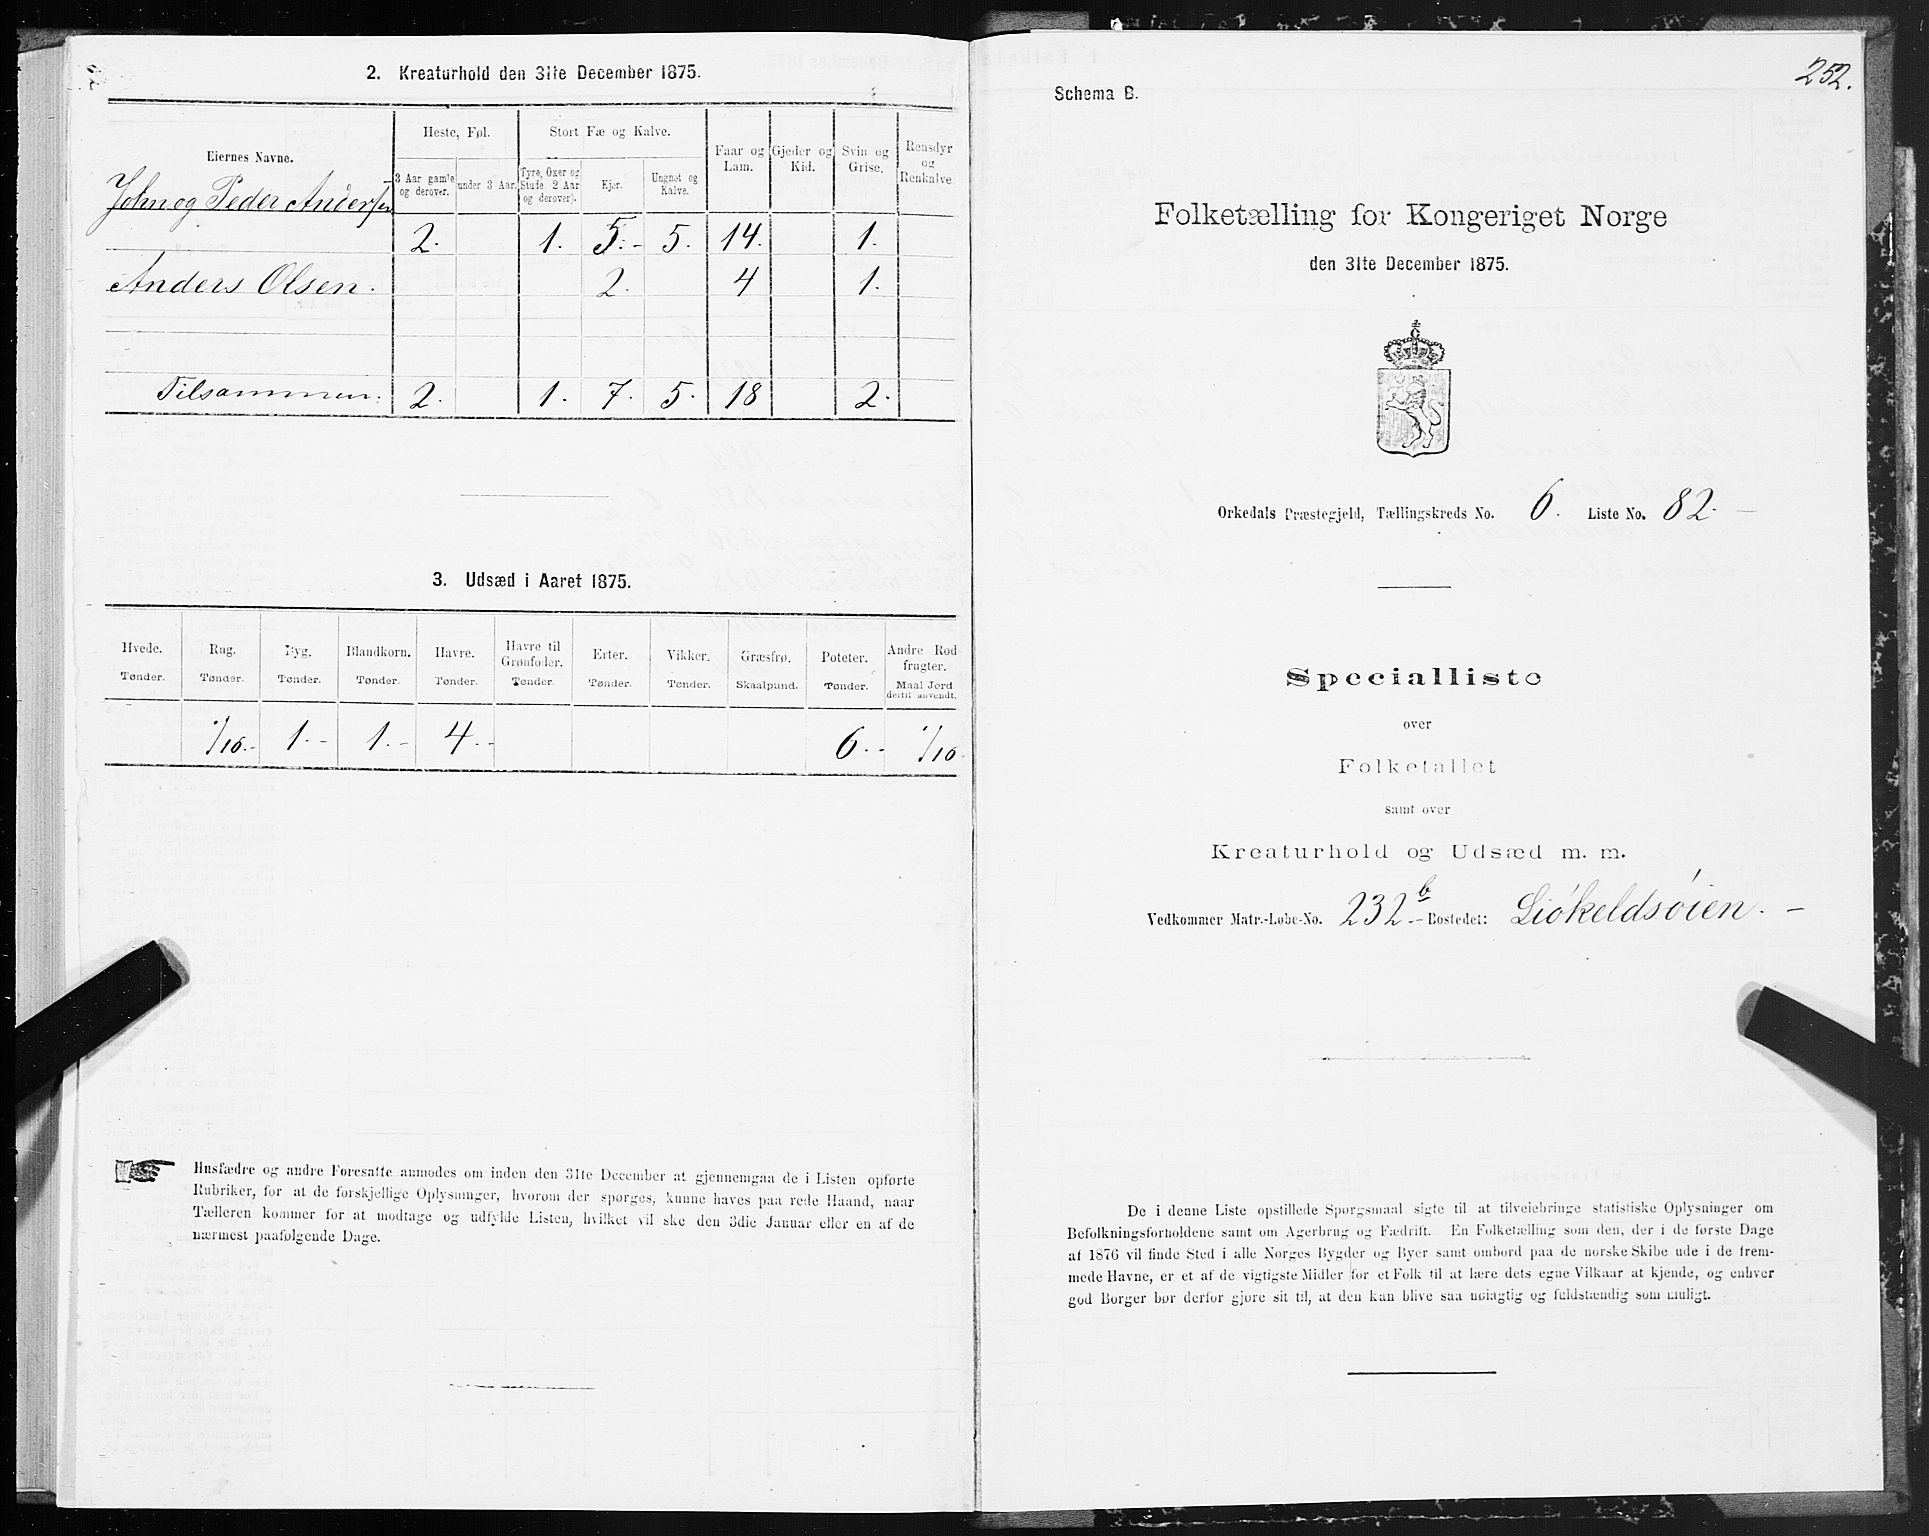 2. Kreaturhold den 31te December 1875.
Eiernes Navne.
Heste, Føl.
Stort Fæ og Kalve.
Faar og Lam.
Gjeder og Kid.
Svin og Grise.
Rensdyr og Renkalve.
3 Aar gamle og derover.
under 3 Aar.
Tyre, Oxer og Stude (2 Aar og derover).
Kjør.
Ungnøt og Kalve.
John og Peder Andersen
2. 1. 5.- 5. 14. 1.
Anders Olsen. 2. 4 1.
Tilsammen: 2. 1. 7. 5. 18 2.
3. Udsæd i Aaret 1875.
Hvede. Tønder.
Rug. Tønder.
Byg. Tønder.
Blandkorn. Tønder.
Havre. Tønder.
Havre til Grønfoder. Tønder.
Erter. Tønder.
Vikker. Tønder.
Græsfrø. Skaalpund.
Poteter. Tønder.
Andre Rodfrugter. Maal Jord dertil anvendt.
1/10.- 1.- 1.- 4.- 6.- 1/10.
Husfædre og andre Foresatte anmodes om inden den 31te December at gjennemgaa de i Listen opførte
Rubriker, for at de forskjellige Oplysninger, hvorom der spørges, kunne haves paa rede Haand, naar
Tælleren kommer for at modtage og udfylde Listen, hvilket vil ske den 3die Januar eller en af de
nærmest paafølgende Dage.
252.
Schema B.
Folketælling for Kongeriget Norge
den 31te December 1875.
Orkedals Præstegjeld, Tællingskreds No. 6. Liste No. 82.-
Specialliste
over
Folketallet
samt over
Kreaturhold og Udsæd m. m.
Vedkommer Matr.-Løbe-No. 232b.- Bostedet: Liökeldsöien.-
De i denne Liste opstillede Spørgsmaal sigte til at tilveiebringe statistiske Oplysninger om
Befolkningsforholdene samt om Agerbrug og Fædrift. En Folketælling som den, der i de første Dage
af 1876 vil finde Sted i alle Norges Bygder og Byer samt ombord paa de norske Skibe ude i de frem-
mede Havne, er et af de vigtigste Midler for et Folk til at lære dets egne Vilkaar at kjende, og enhver
god Borger bør derfor gjøre sit til, at den kan blive saa nøiagtig og fuldstændig som muligt.